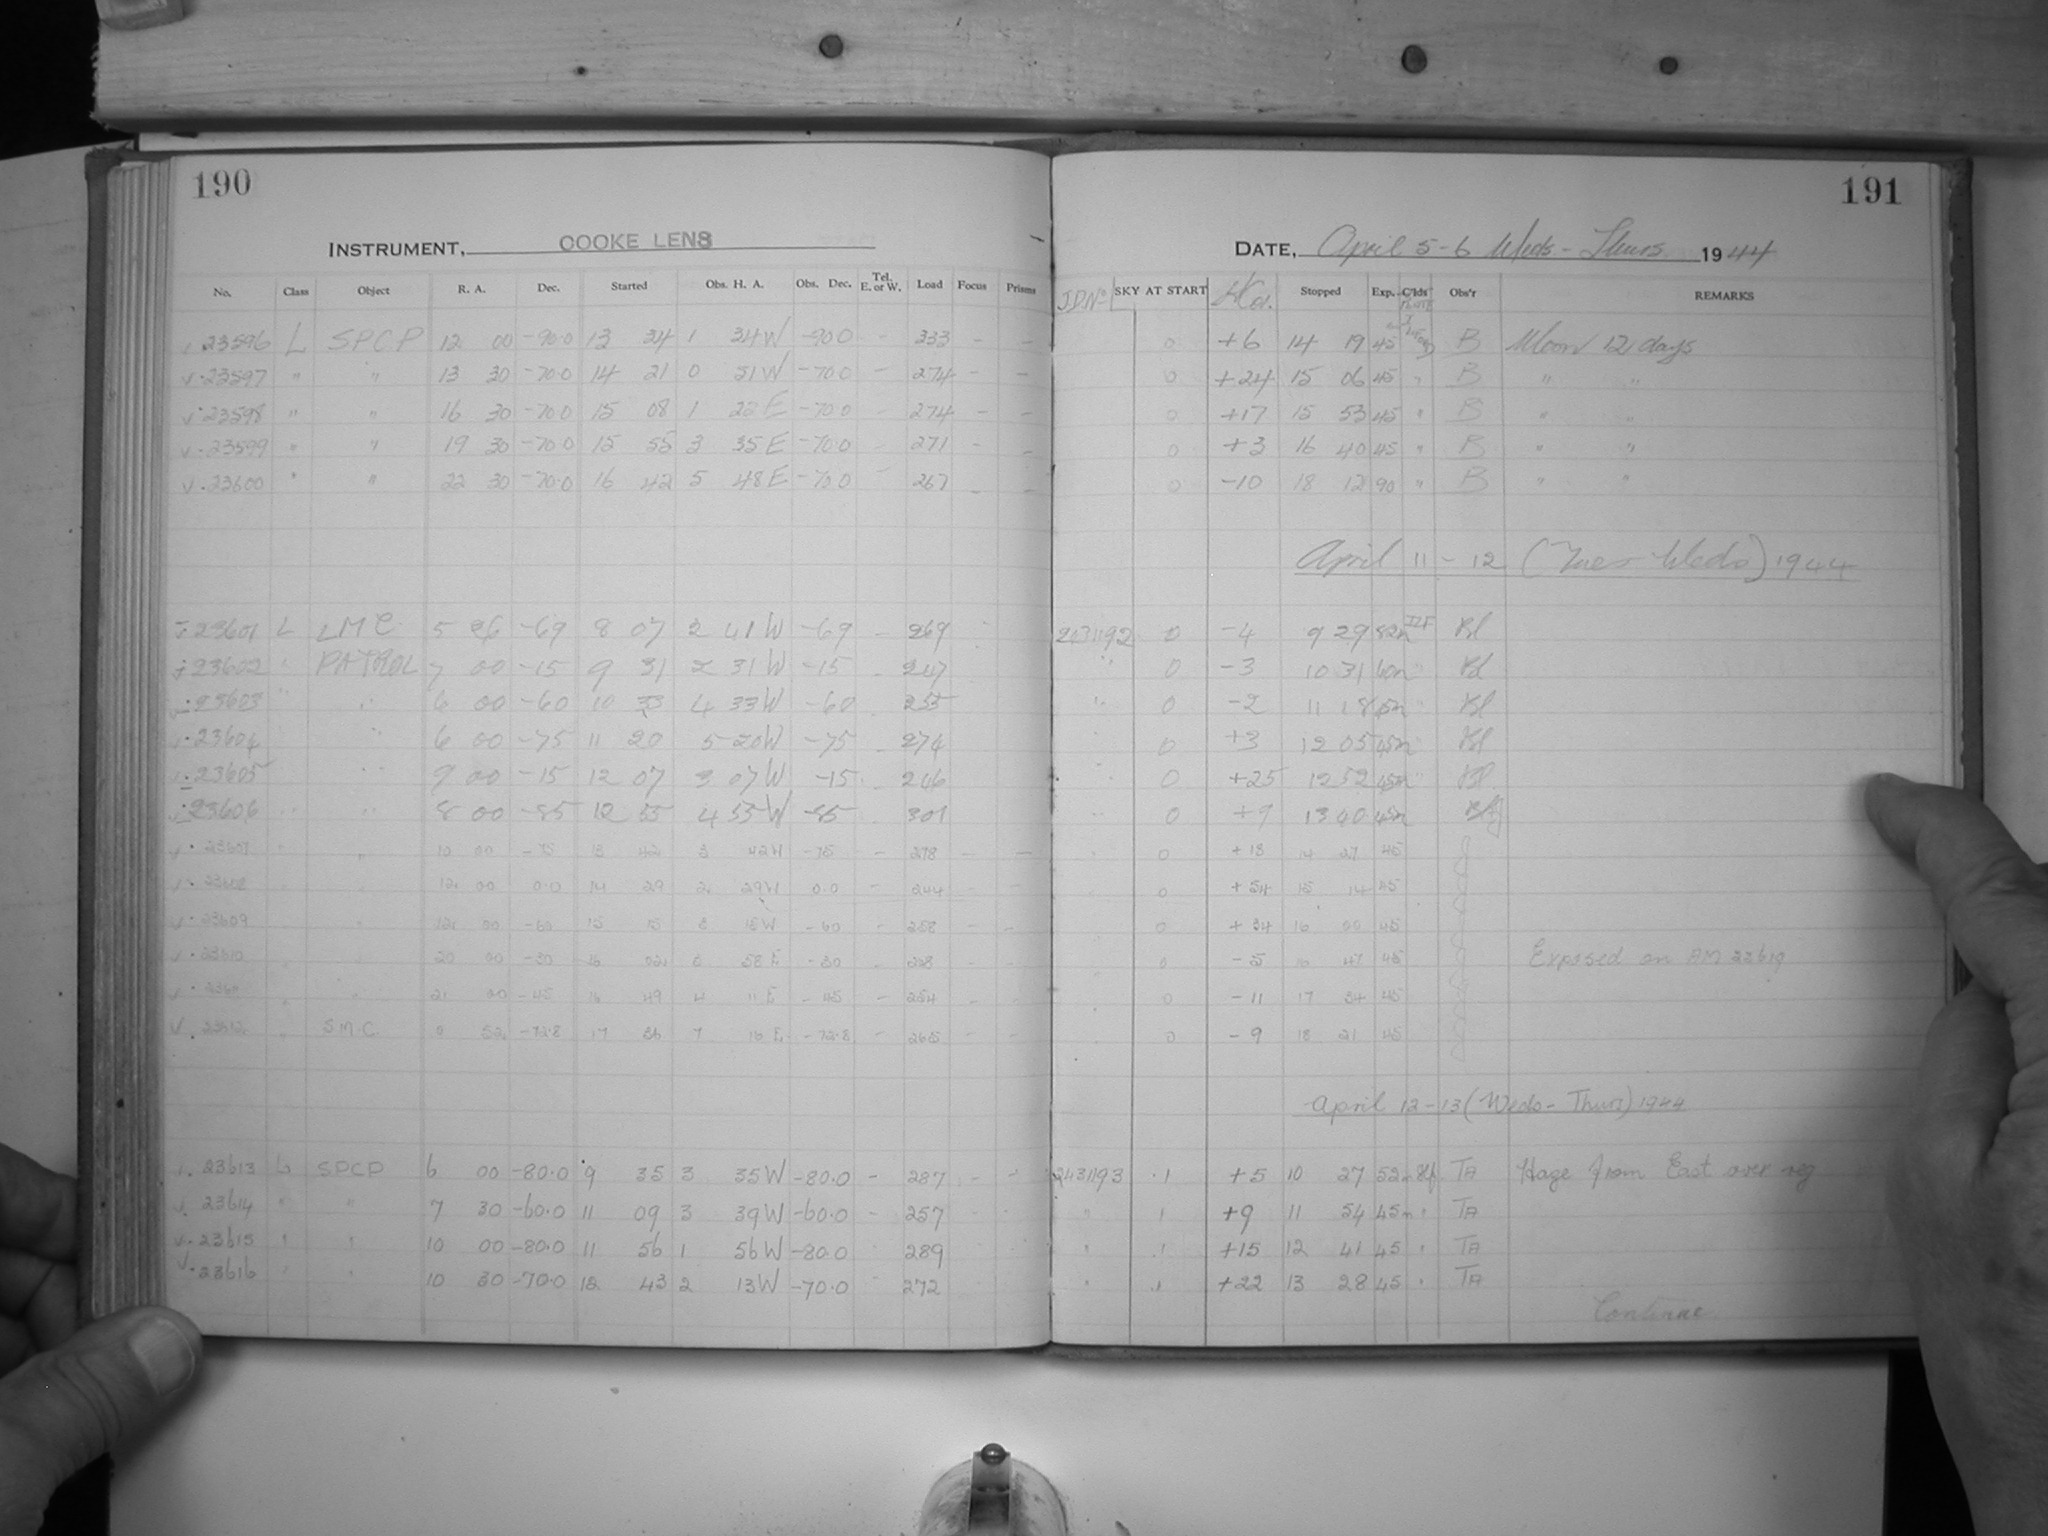 190
191
INSTRUMENT, COOKE LENS
DATE, April 5-6 Weds - Thurs. 1944
No. Class Object R. A. Dec. Started Obs. H. A. Obs. Dec. Tel. E. or W. Load Focus Prisms J.D.No SKY AT START Stopped Exp. C'lds Obs'r REMARKS
23596 L SPCP 12 00 -90.0 13 34 1 34W -90.0 - 333 - - 0 +6 14 19 45 B Moon 12 days
v 23597 " " 13 30 -70.0 14 21 0 51W -70.0 - 274 - - 0 +24 15 06 45 " B " "
v 23598 " " 16 30 -70.0 15 08 1 22E -70.0 - 274 - - 0 +17 15 53 45 " B " "
v 23599 " " 19 30 -70.0 15 55 3 35E -70.0 - 271 - - 0 +3 16 40 45 " B " "
v 23600 " " 22 30 -70.0 16 42 5 48E -70.0 - 267 - - 0 -10 18 12 90 " B " "
April 11-12 (Tues - Weds) 1944
23601 L LMC 5 26 -69 8 07 2 41W -69 - 269 2431192 0 -4 9 29 82m Bl
23602 " PATROL 7 00 -15 9 31 2 31W -15 - 247 " 0 -3 10 31 60m " Bl
23603 " " 6 00 -60 10 33 4 33W -60 - 255 " 0 -2 11 18 45m " Bl
23604 " 6 00 -75 11 20 5 20W -75 - 274 " 0 +3 12 05 45m " Bl
23605 " 9 00 -15 12 07 3 07W -15 - 246 " 0 +25 12 52 45m " Bl
23606 " " 8 00 -85 12 55 4 55W -85 301 " 0 13 40 45m
v 23607 " " 10 00 -75 13 42 3 42W -75 - 278 - - " 0 +18 14 27 45
v 23608 " " 12 00 0.0 14 29 2 29W 0.0 - 244 " 0 +54 15 14 45
v 23609 " 12 00 -60 15 15 3 15W -60 - 258 - - 0 +34 16 00 45
v 23610 " 20 00 -30 16 02 3 58E -30 - - - 0 -5 16 47 45 Exposed on AM
v 23611 " " 21 00 -45 16 49 4 11E -45 - 254 - - 0 -11 17 34 45
v 23612 " S.M.C. 0 52 -72.8 17 36 7 16E -72.8 - 265 - - 0 -9 18 21 45
April 12-13 (Weds - Thurs) 1944
23613 L SPCP 6 00 -80.0 9 35 3 35W -80.0 - 287 - - 2431193 .1 +5 10 27 52m TA Haze from East over reg
23614 " " 7 30 -60.0 11 09 3 39W -60.0 - 257 " 1 +9 11 54 45m " TA
v 23615 " " 10 00 -80.0 11 56 1 56W -80.0 289 " .1 +15 12 41 45 " TA
v 23616 " " 10 30 -70.0 12 43 2 13W -70.0 272 " .1 +22 13 28 45 " TA
Continue